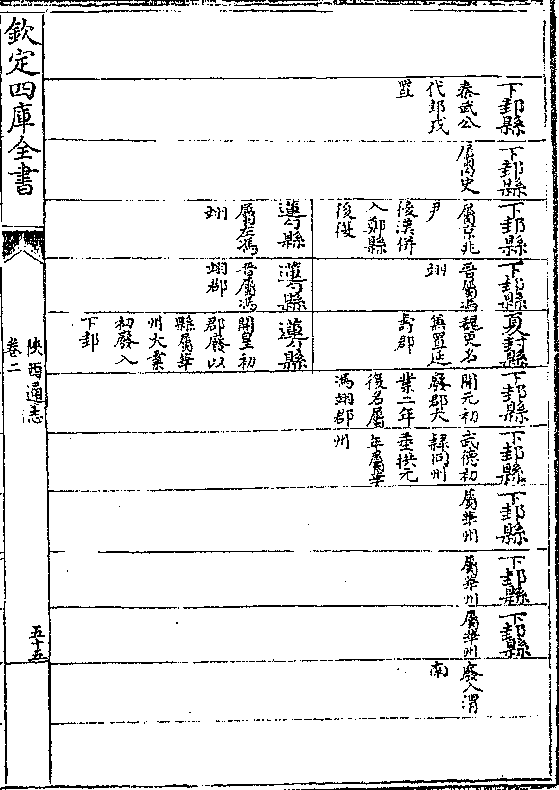 下邽縣
秦武公
代邽戎
置
下邽縣
屬內史
下邽縣
屬京兆
尹
後漢併
入鄭縣
後復
蓮勺縣
屬左馮
翊
下邽縣
晉屬馮
翊
蓮勺縣
晉屬馮
翊郡
夏封縣
魏更名
無置延
壽郡
蓮勺縣
開皇初
郡廢以
縣屬華
州大業
初廢入
下邽
下邽縣
開元初
廢郡大
業二年
復名屬
馮翊郡
下邽縣
武德初
隸同州
垂拱元
年屬華
州
下邽縣
屬華州
下邽縣
屬華州
下邽縣
屬華州
廢入渭
南
欽定四庫全書
陜西通志
卷二
五十五